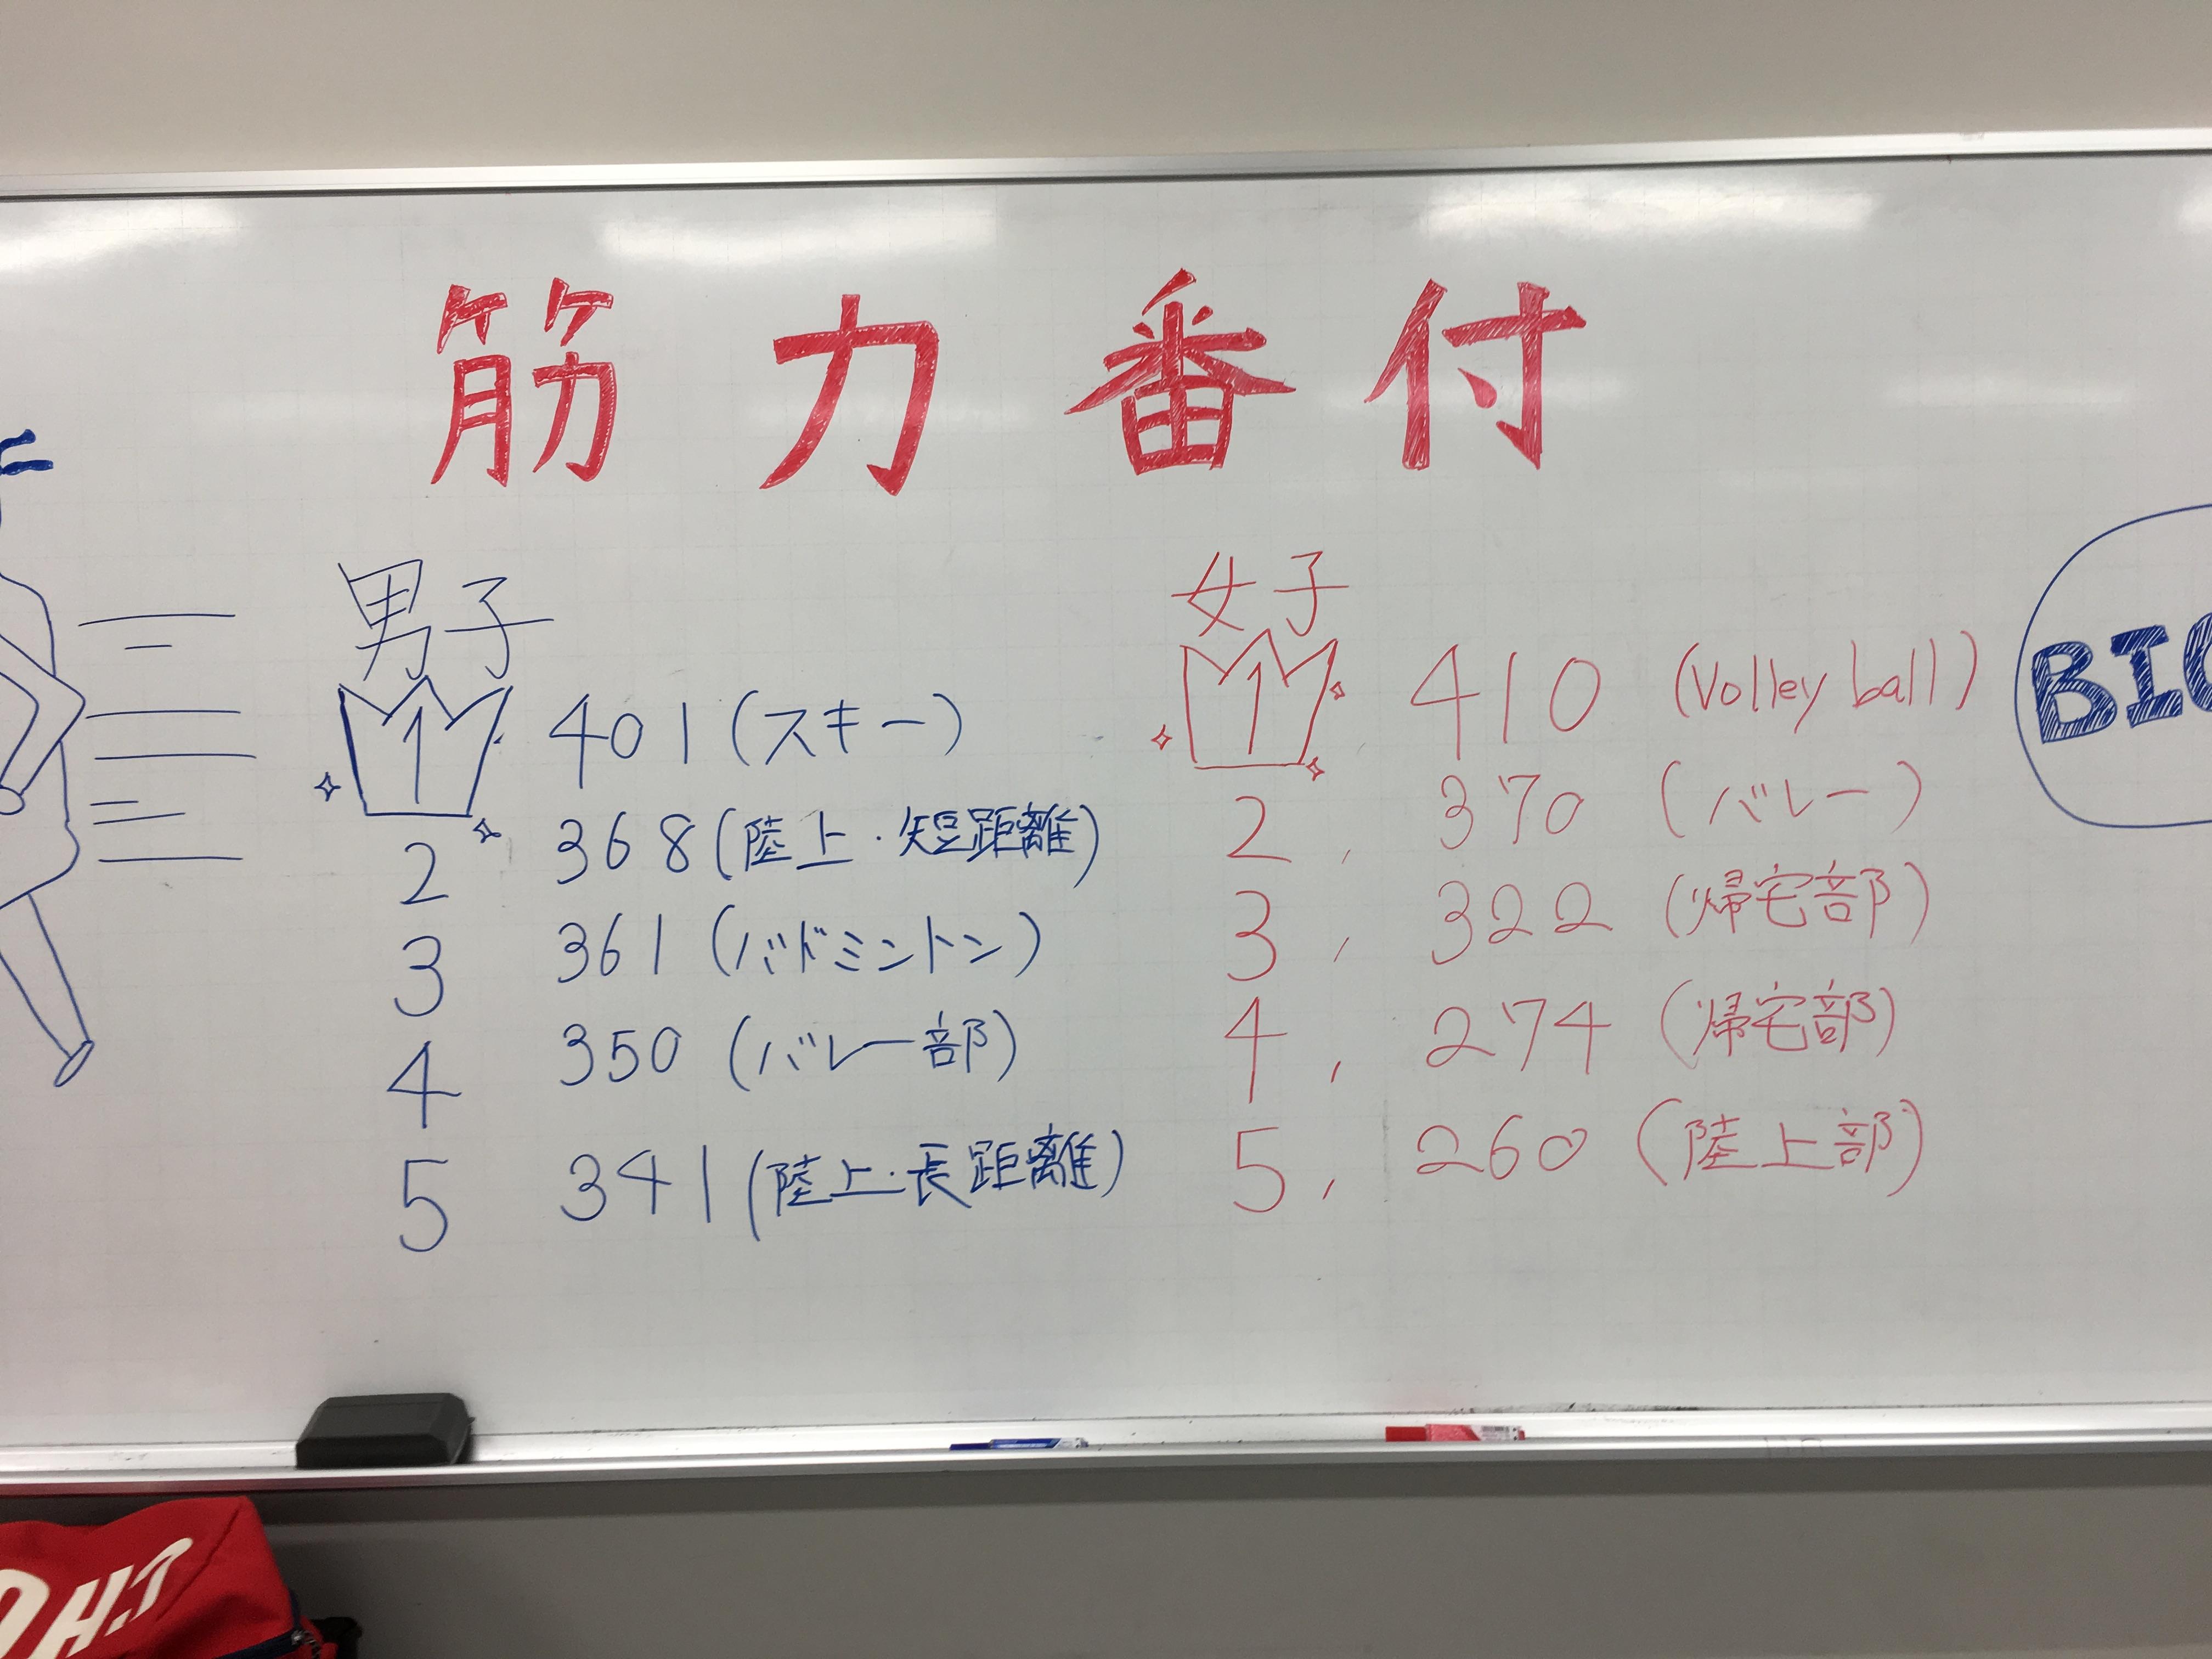 筋力番付
男子
1 401 (スキー)
2 368 (陸上・短距離)
3 361 (バドミントン)
4 350 (バレー部)
5 341 (陸上・長距離)
女子
1, 410 (Volley ball)
2, 370 (バレー)
3, 322 (帰宅部)
4, 274 (帰宅部)
5, 260 (陸上部)